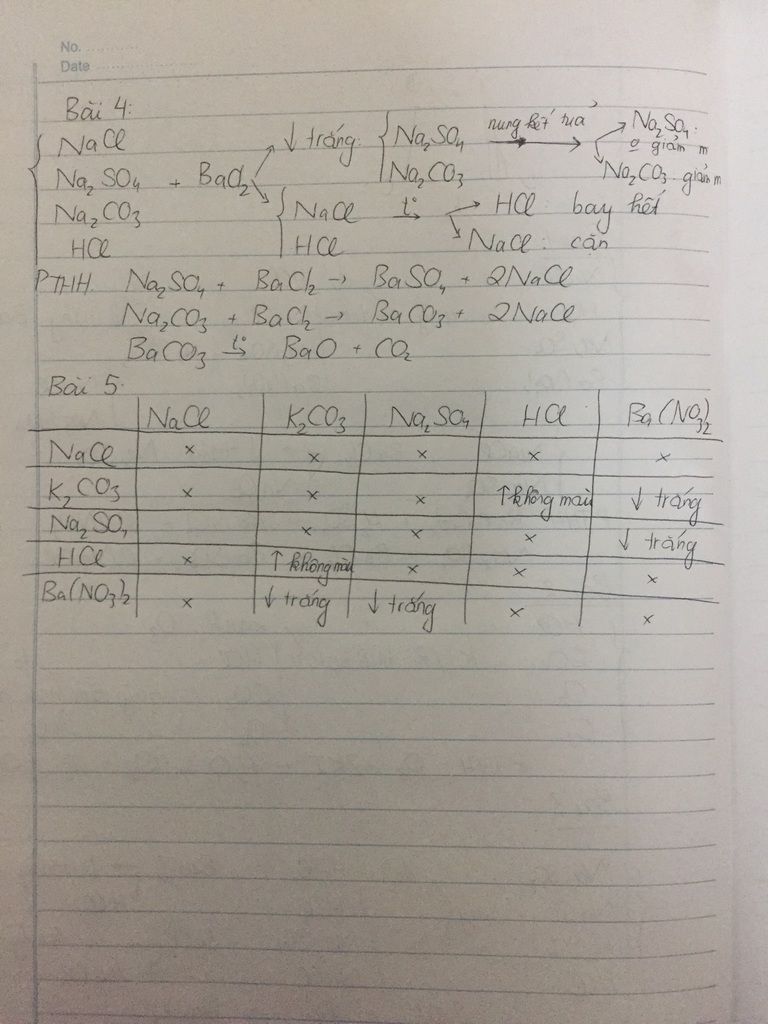 No.
Date
Bài 4:
NaCl
Na₂SO₄ + BaCl₂
Na₂CO₃
HCl
↓ trắng: { Na₂SO₄ nung kết tủa → Na₂SO₄: o giảm m
Na₂CO₃ Na₂CO₃: giảm m
{ NaCl t° → HCl: bay hết
HCl NaCl: cặn
PTHH Na₂SO₄ + BaCl₂ → BaSO₄ + 2NaCl
Na₂CO₃ + BaCl₂ → BaCO₃ + 2NaCl
BaCO₃ t°→ BaO + CO₂
Bài 5:
NaCl K₂CO₃ Na₂SO₄ HCl Ba(NO₃)₂
NaCl × × × × ×
K₂CO₃ × × × ↑ không màu ↓ trắng
Na₂SO₄ × × × ↓ trắng
HCl × ↑ không màu × × ×
Ba(NO₃)₂ × ↓ trắng ↓ trắng × ×